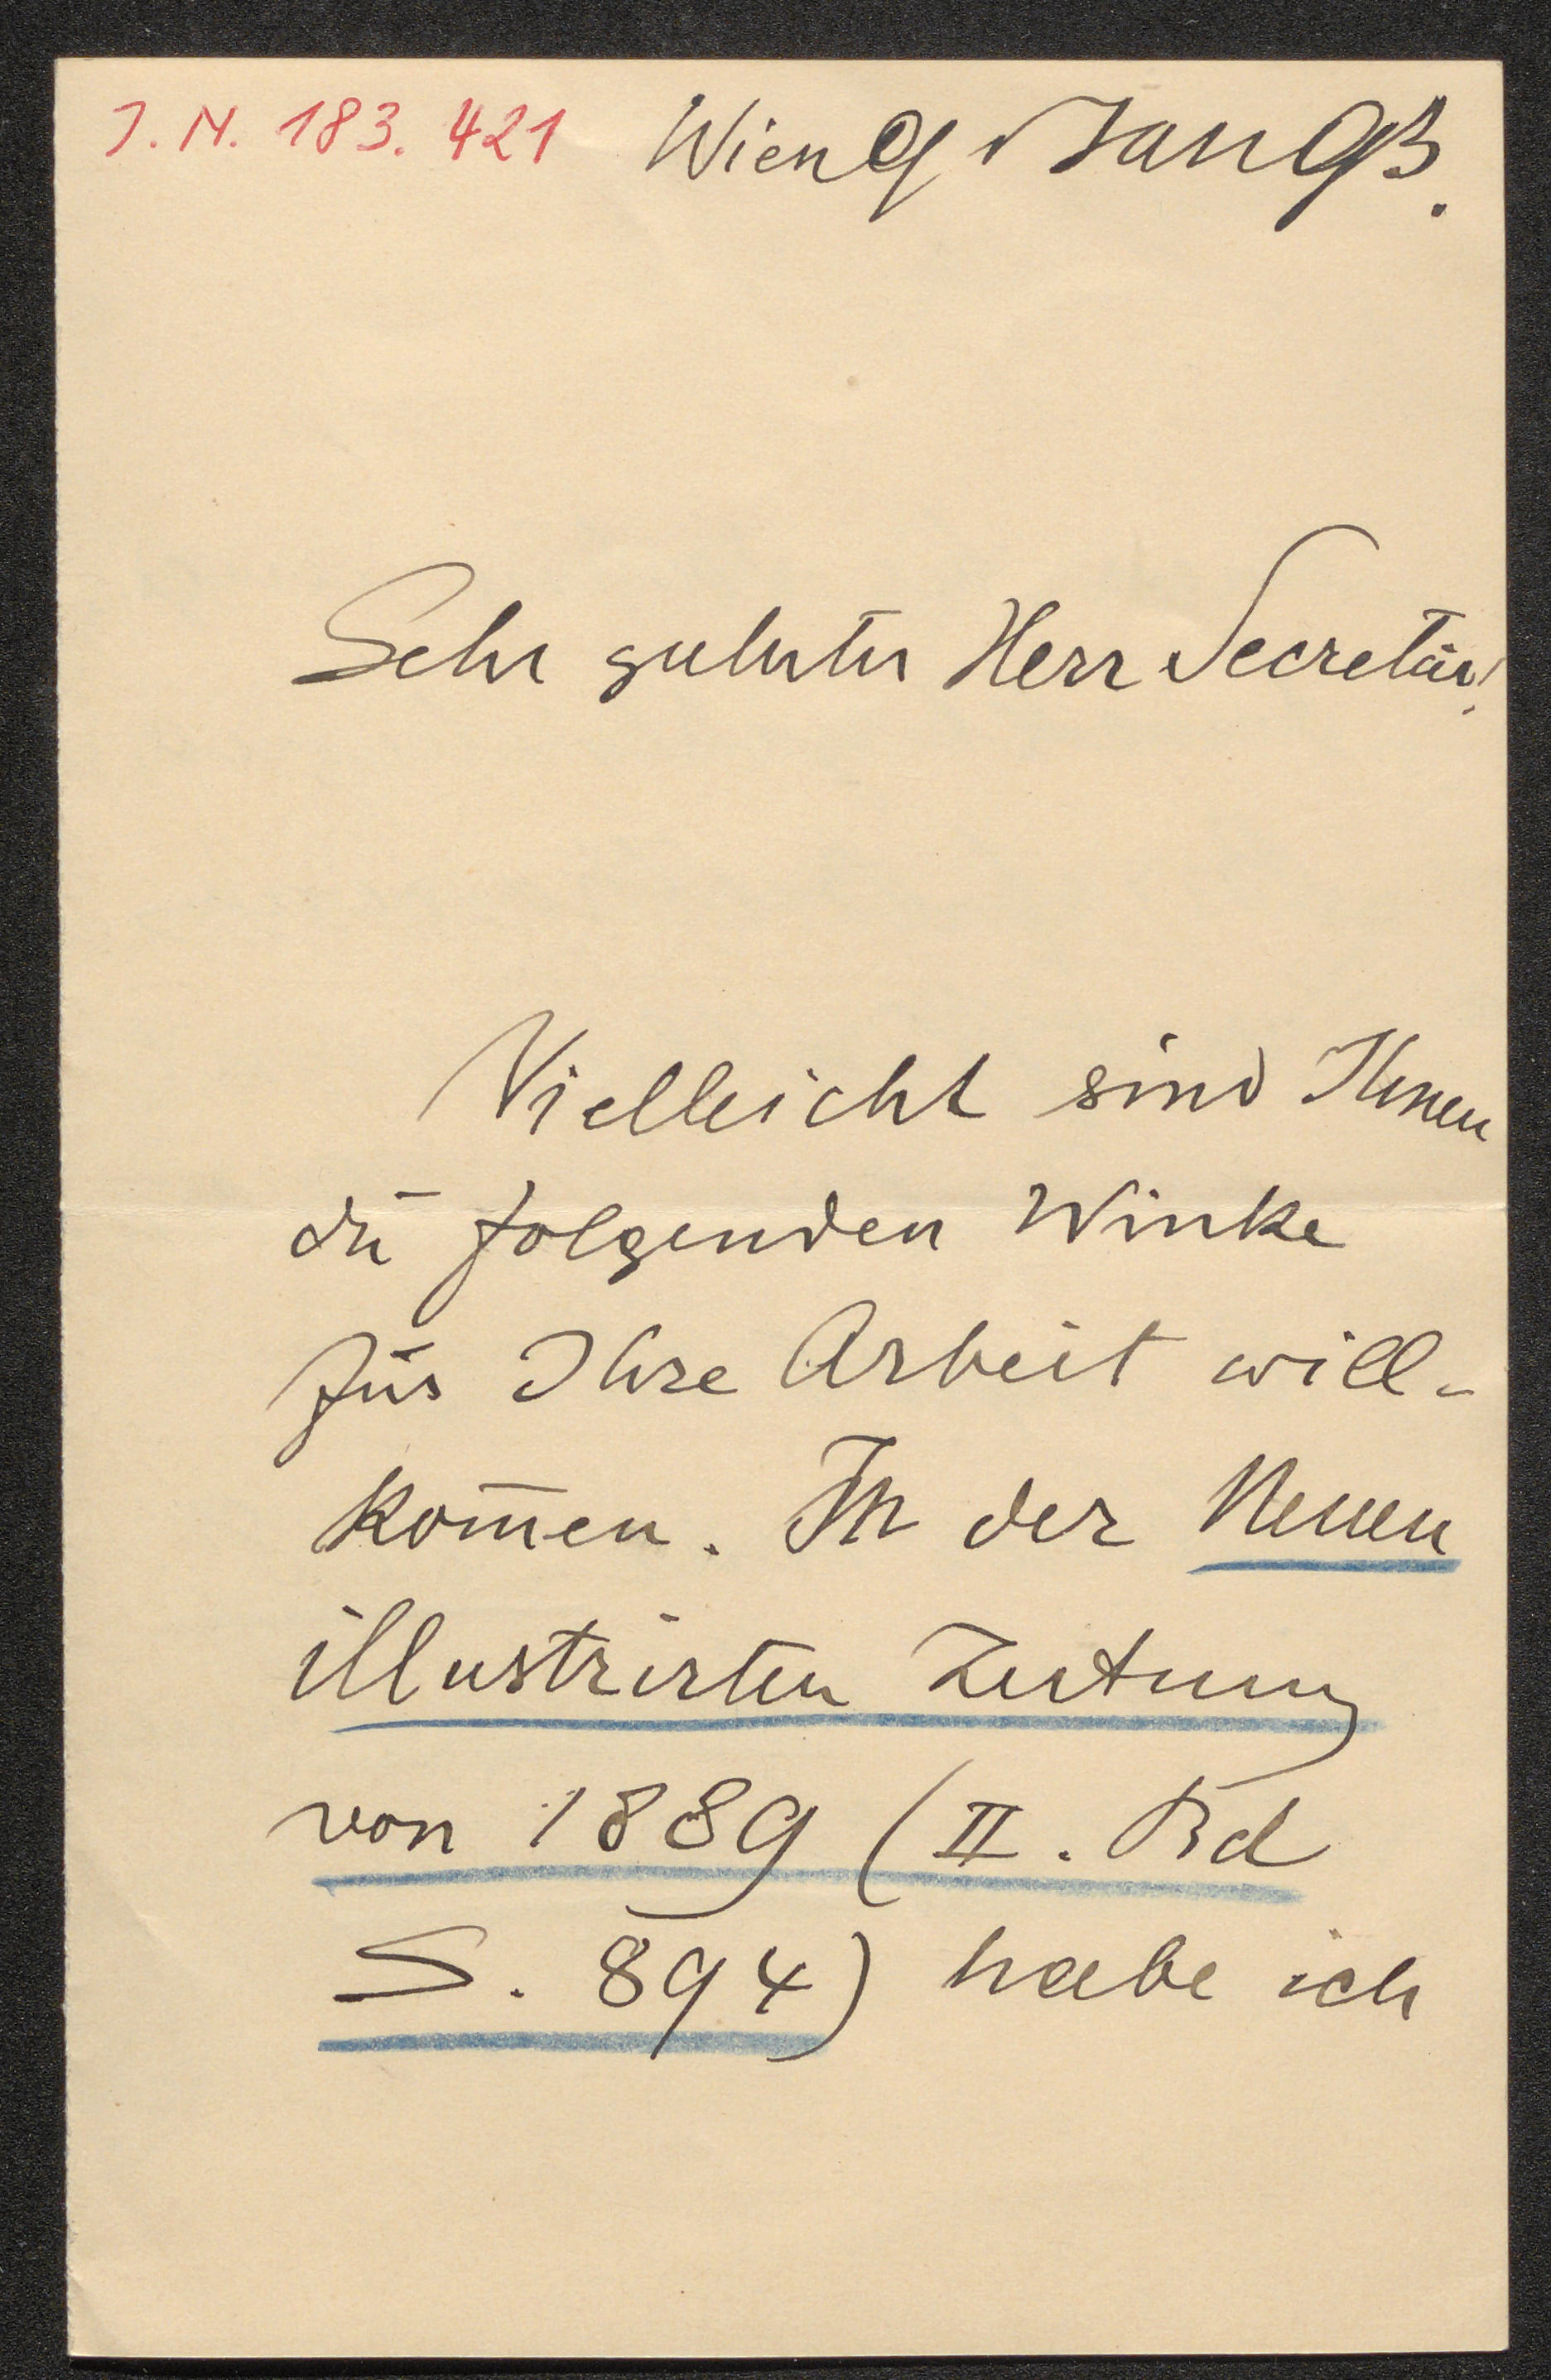 J. N. 183. 421 Wien 9 Jan 93.
Sehr geehrter Herr Secretär!
Vielleicht sind Ihnen
die folgenden Winke
für Ihre Arbeit will-
kom̅en. In der Neuen
illustrirten Zeitung
von 1889 (II. Bd
S. 894) habe ich